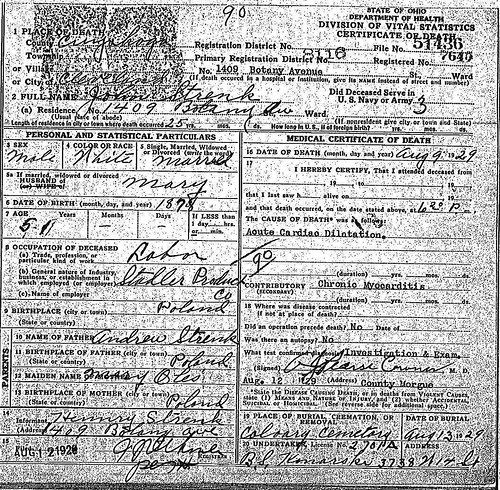 90
STATE OF OHIO
DEPARTMENT OF HEALTH
DIVISION OF VITAL STATISTICS
CERTIFICATE OF DEATH
1 PLACE OF DEATH
County
Township
or Village
or City of Cleveland
Registration District No.
File No. 51436
Primary Registration District No. 8116
Registered No. 7640
No. 1409 Botany Avenue St., Ward
(If death occurred in a hospital or institution, give its name instead of street and number)
2 FULL NAME John Strenk
Did Deceased Serve in
U. S. Navy or Army
(a) Residence No. 1409 Botany Av Ward.
(Usual place of abode)
(If nonresident give city or town and State)
Length of residence in city or town where death occurred 25 yrs. mos. ds.
How long in U. S., if of foreign birth? yrs. mos. ds.
PERSONAL AND STATISTICAL PARTICULARS
3 SEX
Male
4 COLOR OR RACE
White
5 Single, Married, Widowed
or Divorced (write the word)
Married
5a If married, widowed or divorced
HUSBAND of
(or) WIFE of
Mary
6 DATE OF BIRTH (month, day, and year) 1878
7 AGE Years Months Days
51
If LESS than
1 day, hrs.
or min.
8 OCCUPATION OF DECEASED
(a) Trade, profession, or
particular kind of work
Labor
(b) General nature of Industry,
business, or establishment in
which employed (or employer)
Stadler Product
Co
(c) Name of employer
Poland
9 BIRTHPLACE (city or town)
(State or country)
PARENTS
10 NAME OF FATHER Andrew Strenk
11 BIRTHPLACE OF FATHER (city or town)
(State or country)
Poland
12 MAIDEN NAME
13 BIRTHPLACE OF MOTHER (city or town)
(State or country)
Poland
14
Informant Strenk
(Address) 1409 Botany Ave
15
AUG 12 1929
REGISTRAR
MEDICAL CERTIFICATE OF DEATH
16 DATE OF DEATH (month, day, and year) Aug 9 1929
17
I HEREBY CERTIFY, That I attended deceased from
19 to 19
that I last saw h alive on 19
and that death occurred, on the date stated above, at
The CAUSE OF DEATH was as follows:
Acute Cardiac Dilatation.
90
(duration) yrs. mos. ds.
CONTRIBUTORY Chronic Myocarditis
(SECONDARY)
(duration) yrs. mos. ds.
18 Where was disease contracted
if not at place of death?
Did an operation precede death? No Date of
Was there an autopsy? No
What test confirmed diagnosis? Investigation & Exam.
(Signed) Coroner M. D.
Aug. 12 1929 (Address) County Morgue
State the DISEASE CAUSING DEATH, or in deaths from VIOLENT CAUSES,
state (1) MEANS AND NATURE OF INJURY, and (2) whether ACCIDENTAL,
SUICIDAL, or HOMICIDAL. (See reverse side for additional space.)
19 PLACE OF BURIAL, CREMATION, OR
REMOVAL
Calvary Cemetery
DATE OF BURIAL
Aug 13 1929
20 UNDERTAKER, License No.
ADDRESS